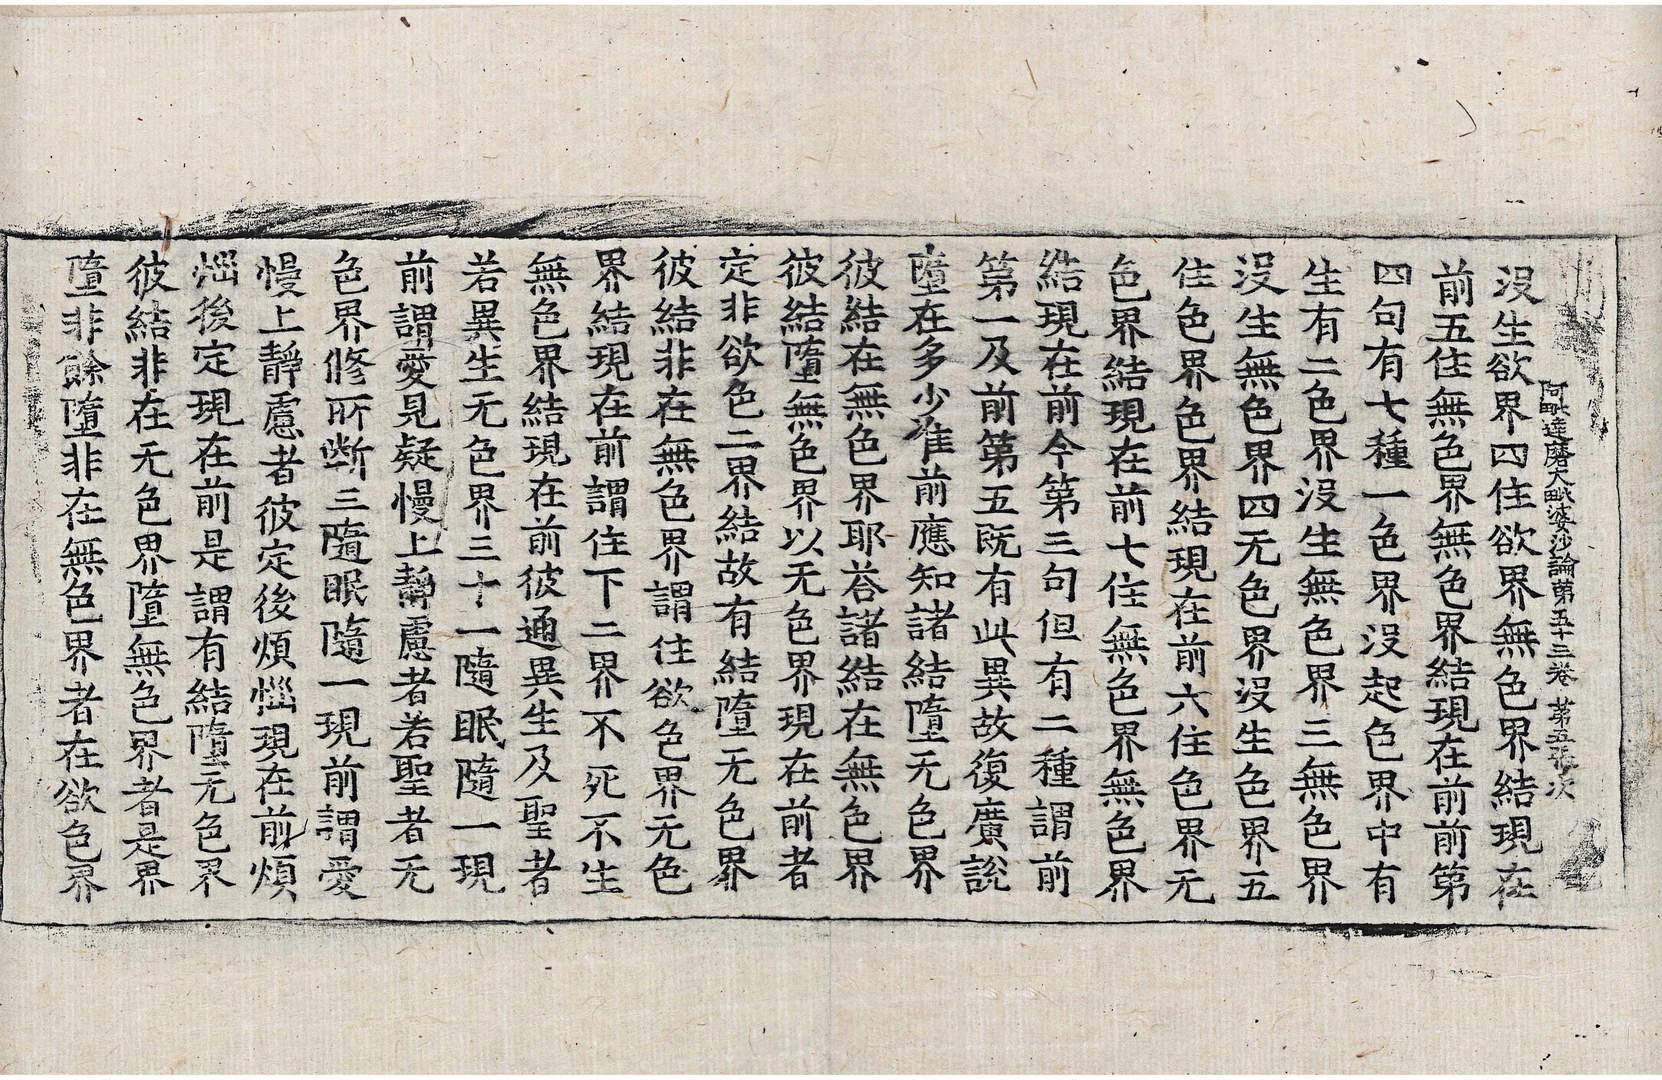 阿毗達磨大毗婆沙論第五十三卷 第五張 次
没生欲界四住欲界無色界結現在
前五住無色界無色界結現在前前第
四句有七種一色界没起色界中有
生有二色界没生無色界三無色界
没生無色界四无色界没生色界五
住色界色界結現在前六住色界无
色界結現在前七住無色界無色界
結現在前今第三句但有二種謂前
第一及前第五既有此異故復廣說
墮在多少准前應知諸結墮无色界
彼結在無色界耶荅諸結在無色界
彼結墮無色界以无色界現在前者
定非欲色二界結故有結墮无色界
彼結非在無色界謂住欲色界无色
界結現在前謂住下二界不死不生
無色界結現在前彼通異生及聖者
若異生无色界三十一隨眠隨一現
前謂愛見疑慢上靜慮者若聖者无
色界修所斷三隨眠隨一現前謂愛
慢上靜慮者彼定後煩惱現在前煩
惱後定現在前是謂有結墮无色界
彼結非在无色界墮無色界者是界
墮非餘墮非在無色界者在欲色界